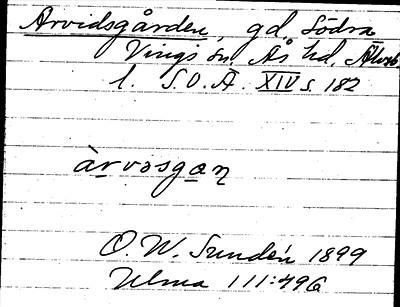 Arvidsgården, gd. Södra
Vings sn. Ås hd. Älvsb.
l. S.O.Ä. XIV s. 182
àrvəsgaɳ
O. W. Sundén 1899
Ulma 111:496